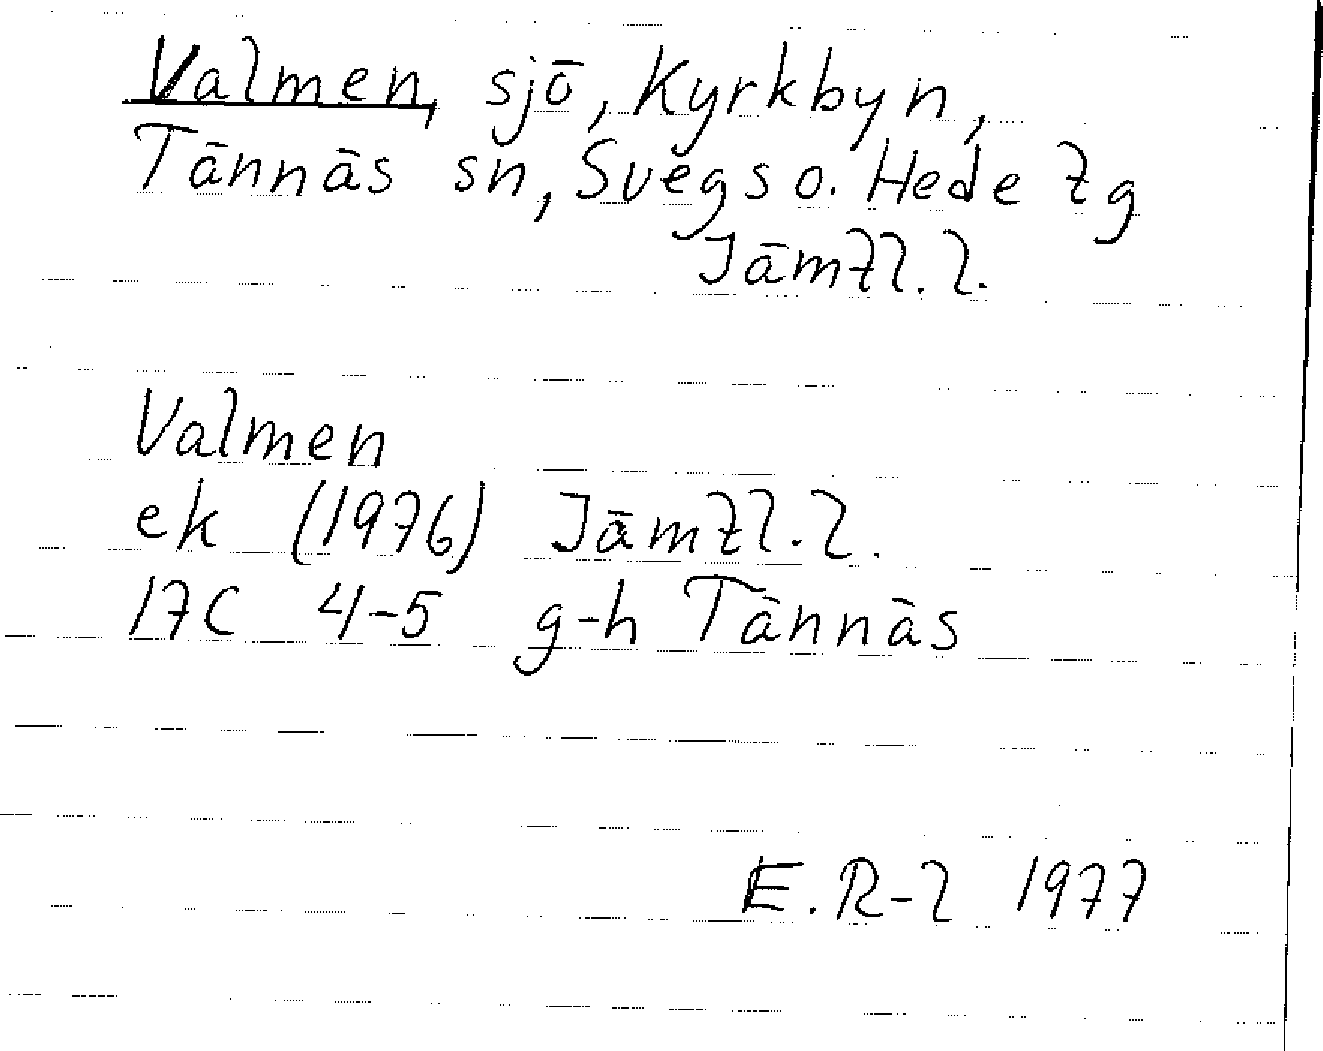 Valmen, sjö, Kyrkbyn,
Tännäs sn, Svegs o. Hede tg
Jämtl. l.
Valmen
ek (1976) Jämtl. l.
17C 4-5 g-h Tännäs
E. R-l 1977